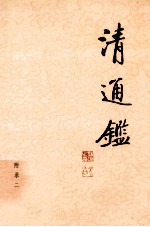 清通鑑
附录二